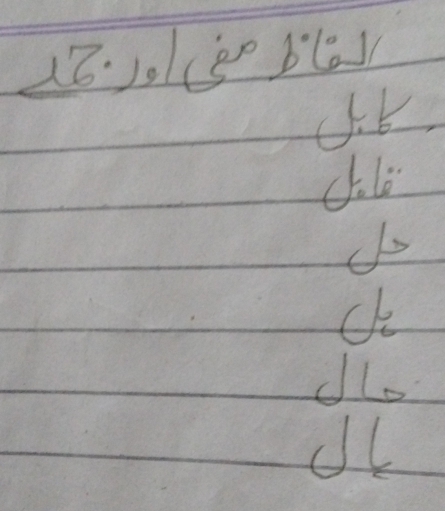 الفاظ معنی اور جملے
کابل
قابل
حل
ہل
حال
بال